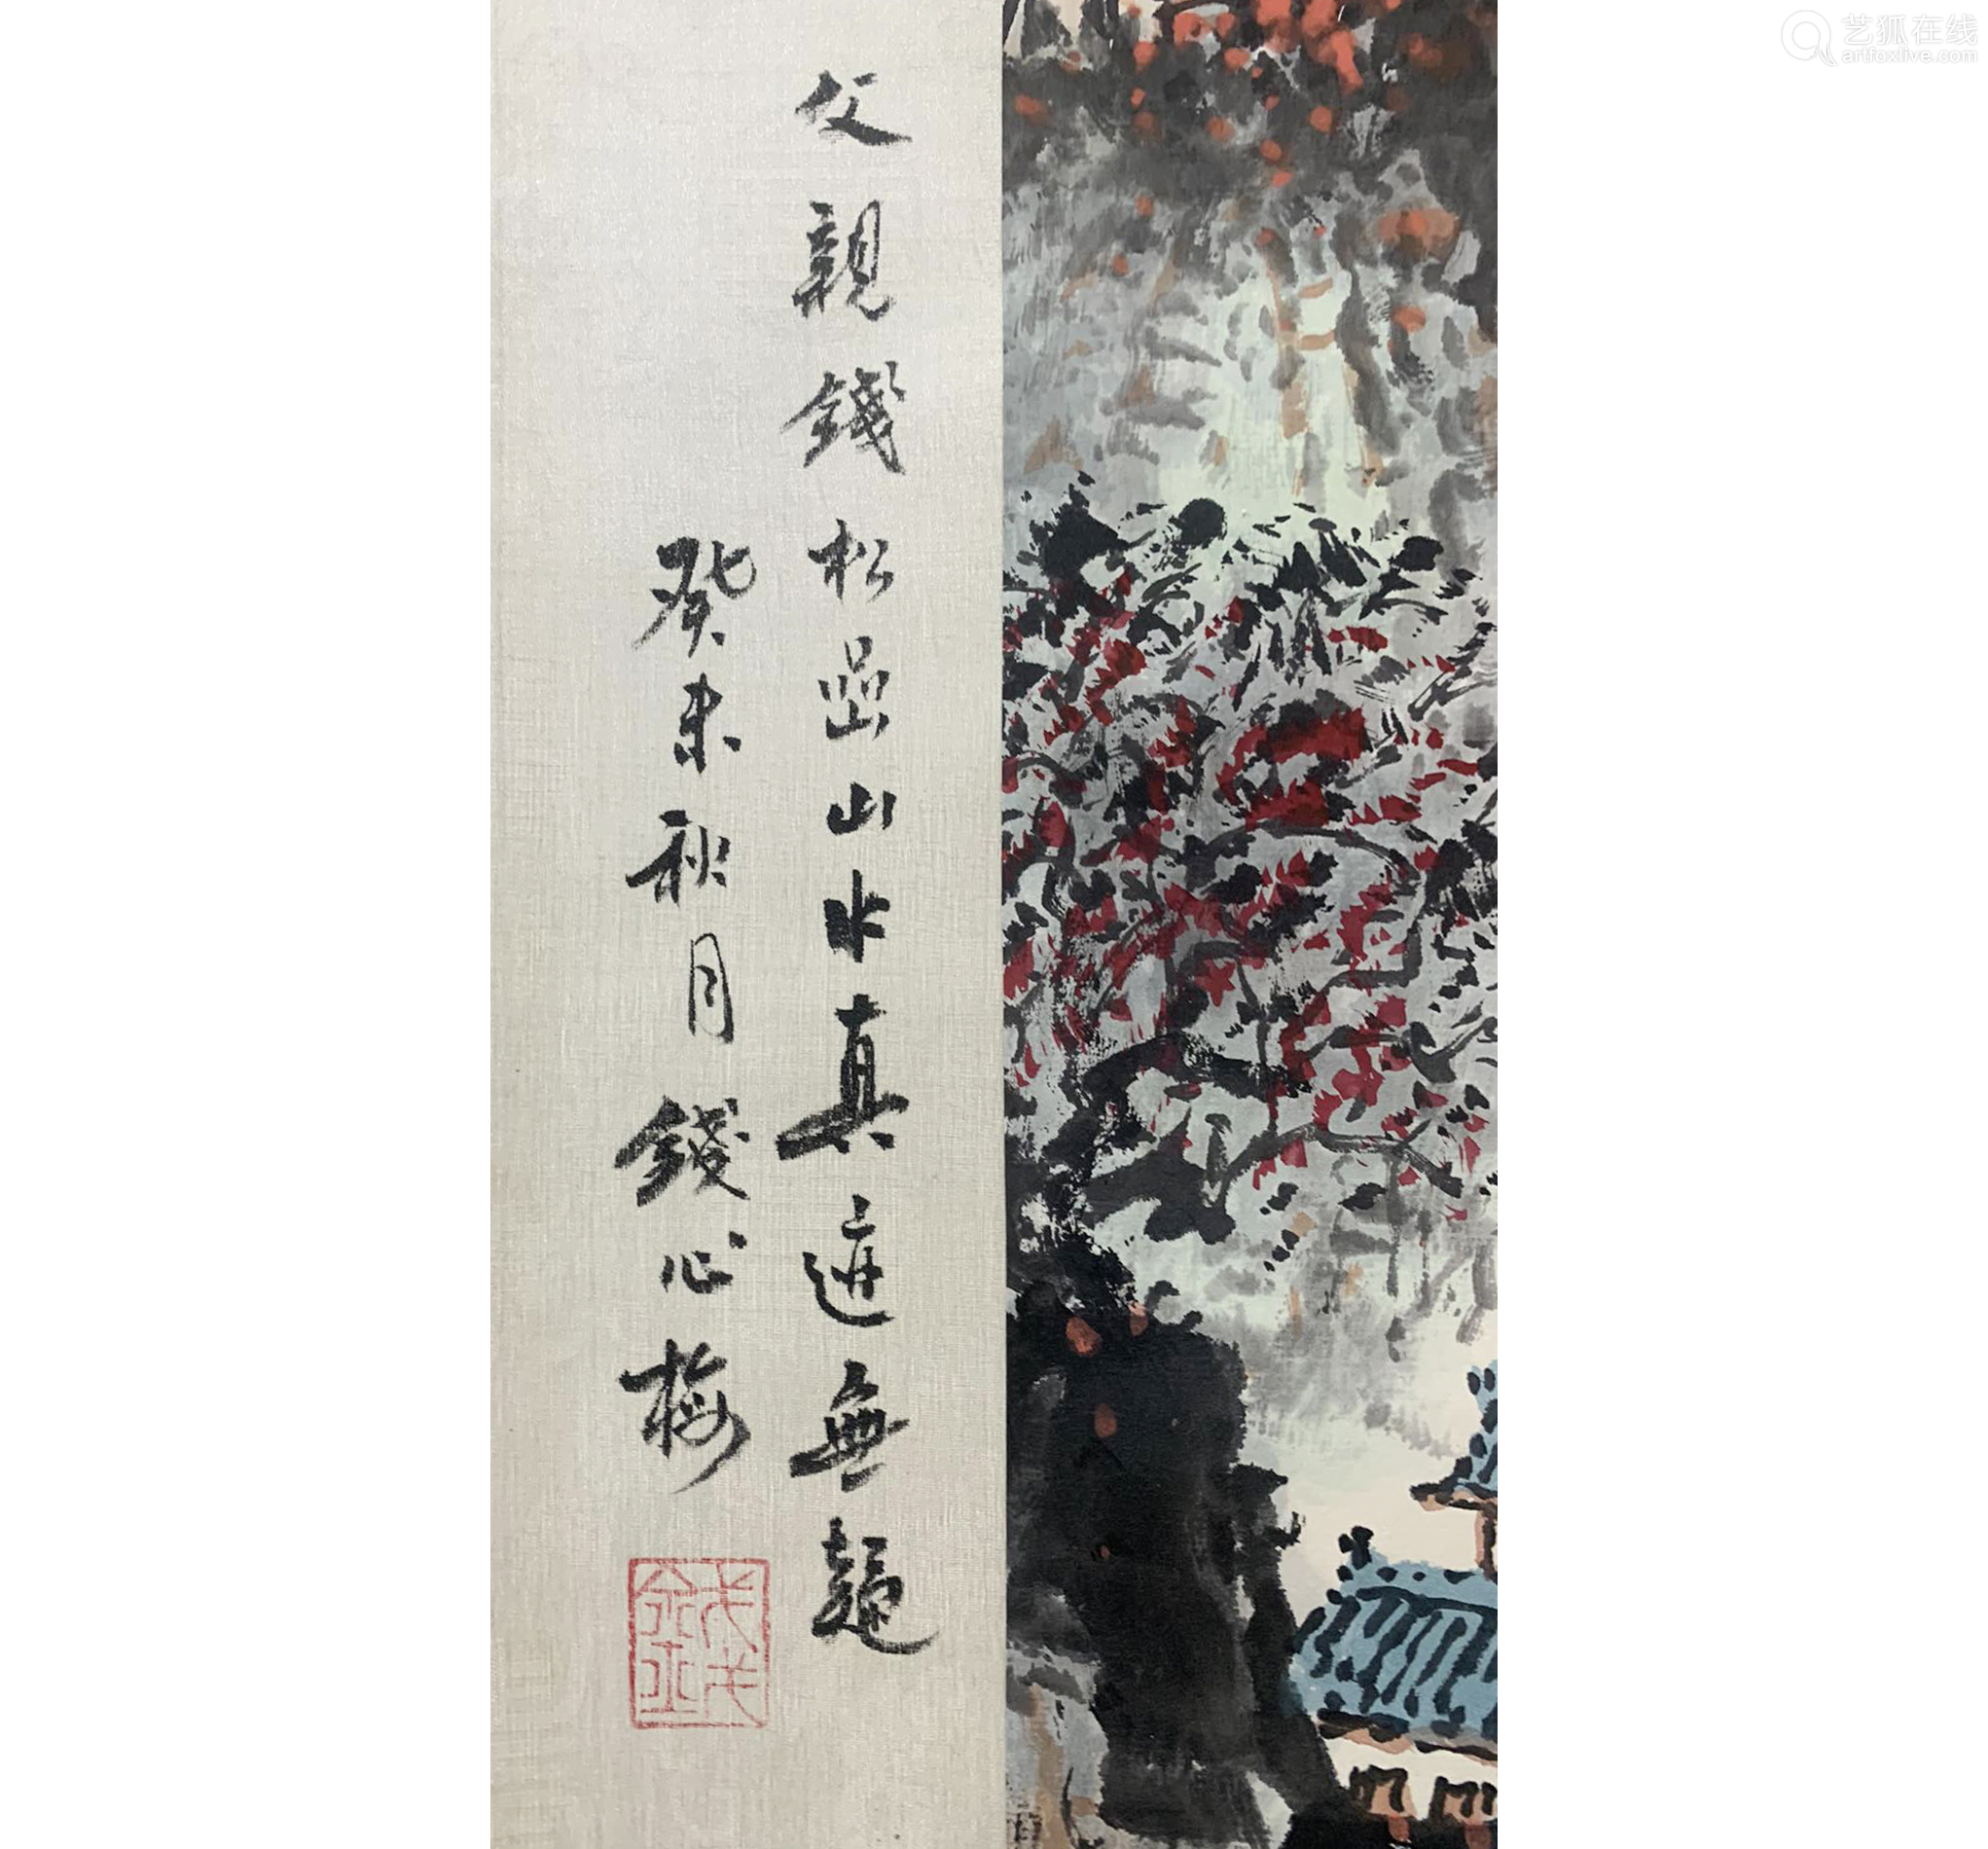 父親錢松喦山水真迹無疑
癸未秋月錢心梅
錢
艺狐在线
artfoxlive.com